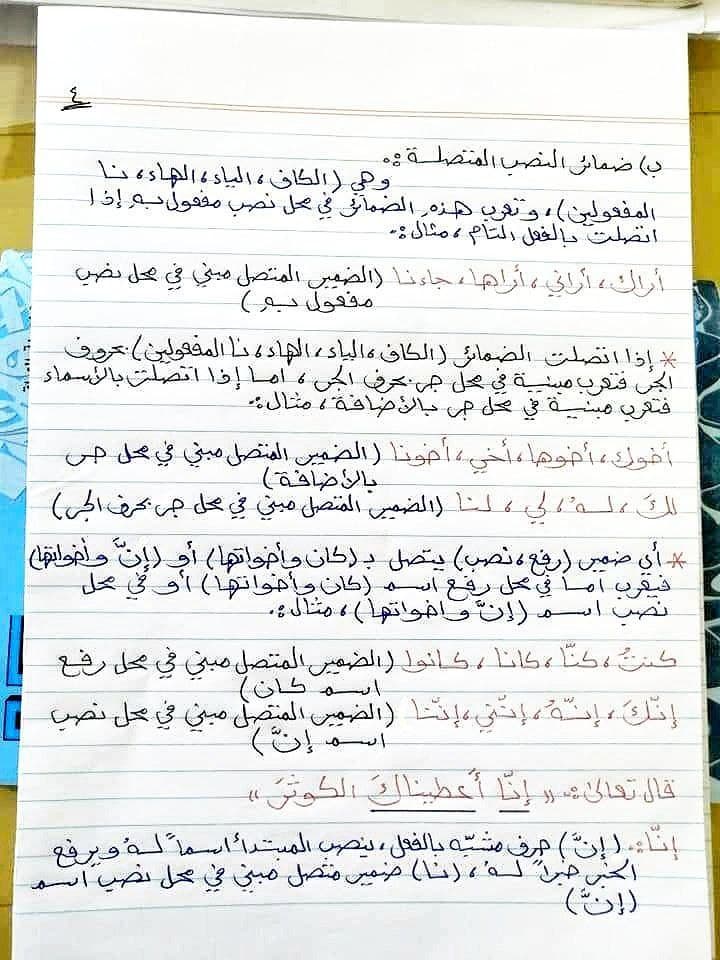 ٤
ب) ضمائر النصب المتصلة :.
وهي (الكاف ، الياء ، الهاء ، نا
المفعولين) ، وتعرب هذهِ الضمائر في محل نصب مفعول بهِ إذا
اتصلت بالفعل التام ، مثال :.
أراك ، أراني ، أراها ، جاءنا (الضمير المتصل مبني في محل نصب
مفعول بهِ)
* إذا اتصلت الضمائر (الكاف ، الياء ، الهاء ، نا المفعولين) بحروف
الجر فتعرب مبنية في محل جر بحرف الجر ، اما إذا اتصلت بالأسماء
فتعرب مبنية في محل جر بالأضافة ، مثال :.
أخوك ، أخوها ، أخي ، أخونا (الضمير المتصل مبني في محل جر
بالأضافة)
لكَ ، لهُ ، لي ، لنا (الضمير المتصل مبني في محل جر بحرف الجر)
* أي ضمير (رفع ، نصب) يتصل بـ (كان وأخواتها) أو (إنَّ وأخواتها)
فيعرب اما في محل رفع اسم (كان وأخواتها) أو في محل
نصب اسم (إنَّ واخواتها) ، مثال :.
كنتُ ، كنّا ، كانا ، كانوا (الضمير المتصل مبني في محل رفع
اسم كان)
إنّكَ ، إنّهُ ، إنّني ، إنّنا (الضمير المتصل مبني في محل نصب
اسم إنَّ)
قال تعالى :. « إنّا أعطيناكَ الكوثرَ »
إنّا :. (إنَّ) حرف مشبّه بالفعل ، ينصب المبتدأ اسماً لهُ ويرفع
الخبر خبراً لهُ ، (نا) ضمير متصل مبني في محل نصب اسم
(إنَّ)